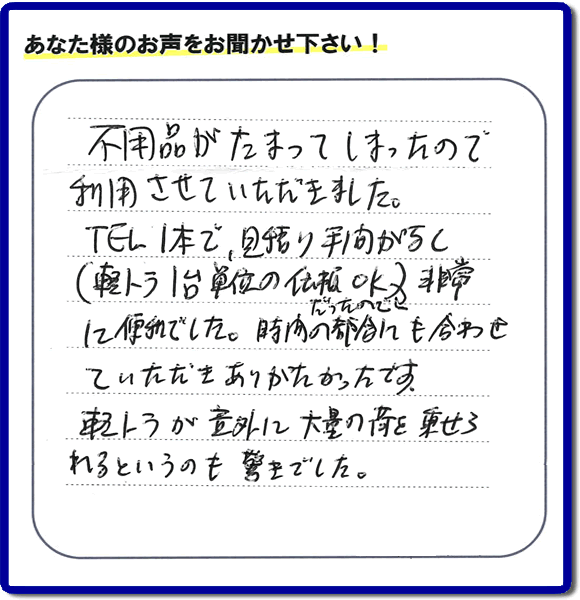 あなた様のお声をお聞かせ下さい！
不用品がたまってしまったので
利用させていただきました。
TEL 1本で、見積り手間がなく
(軽トラ1台単位の伝報OK) 非常
だったので
に便利でした。時間の都合にも合わせ
ていただきありがたかったです。
軽トラが意外に大量の荷を乗せら
れるというのも驚きでした。